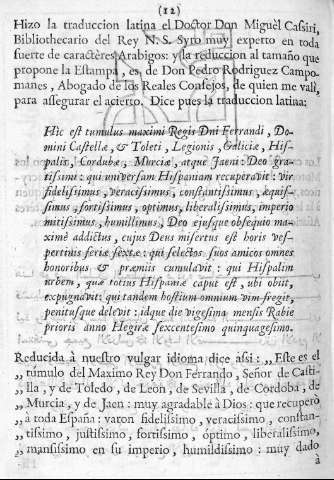 (12)
Hizo la traduccion latina el Doctor Don Miguèl Cassiri,
Bibliothecario del Rey N. S. Syro muy experto en toda
suerte de caractères Arabigos: y la reduccion al tamaño que
propone la Estampa, es de Don Pedro Rodriguez Campo-
manes, Abogado de los Reales Consejos, de quien me valì,
para assegurar el acierto. Dice pues la traduccion latina:
Hic est tumulus maximi Regis Dni Ferrandi, Do-
mini Castellæ, & Toleti, Legionis, Galiciæ, His-
palis, Cordubæ, Murciæ, atque Jaeni: Deo gra-
tissimi: qui universam Hispaniam recuperavit: vir
fidelissimus, veracissimus, constantissimus, æquis-
simus, fortissimus, optimus, liberalissimus, imperio
mitissimus, humillimus, Deo ejusque obsequio ma-
ximè addictus, cujus Deus misertus est horis ves-
pertinis feriæ sextæ: qui selectos suos amicos omnes
honoribus & præmiis cumulavit: qui Hispalim
urbem, quæ totius Hispaniæ caput est, ubi obiit,
expugnavit: qui tandem hostium omnium vim fregit,
penitusque delevit: idque die vigesima mensis Rabie
prioris anno Hegiræ sexcentesimo quinquagesimo.
Reducida à nuestro vulgar idioma dice assi: ,,Este es el
,, túmulo del Maximo Rey Don Ferrando, Señor de Casti-
,, lla, y de Tòledo, de Leon, de Sevilla, de Cordoba, de
,, Murcia, y de Jaen: muy agradable à Dios: que recuperò
,, à toda España: varon fidelissimo, veracissimo, constan-
,, tissimo, justissimo, fortissimo, optimo, liberalissimo,
,, mansissimo en su imperio, humildissimo: muy dado
à